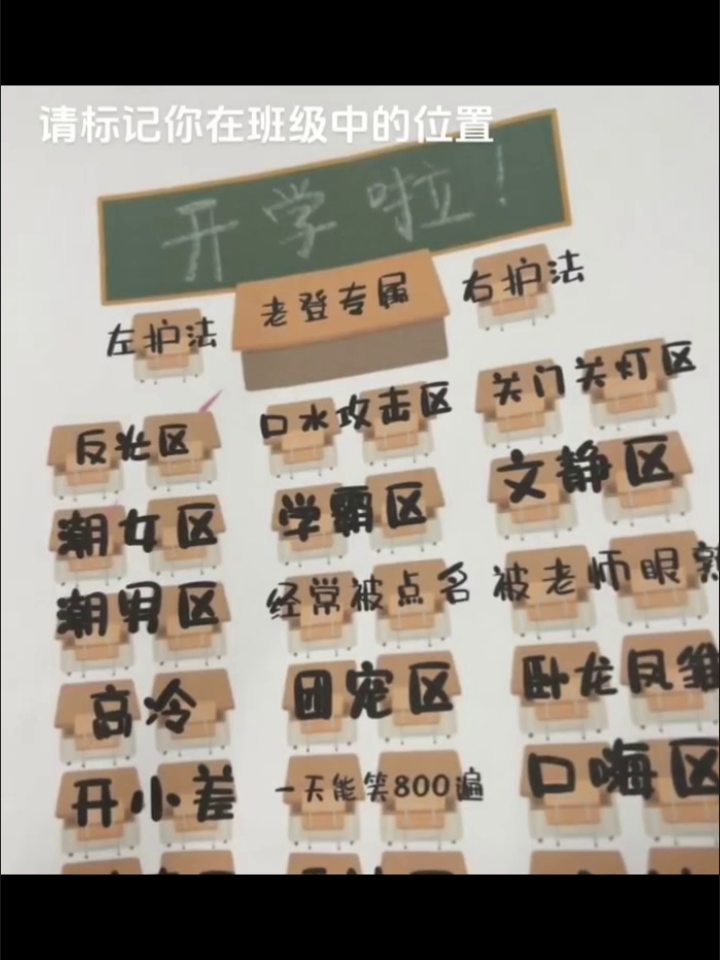 请标记你在班级中的位置
开学啦!
左护法
老登专属
右护法
反光区
口水攻击区
关门关灯区
潮女区
学霸区
文静区
潮男区
经常被点名
被老师眼熟
高冷
团宠区
卧龙凤雏
开小差
一天能笑800遍
口嗨区